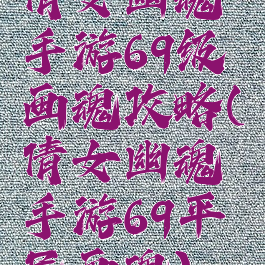 倩女幽魂
手游69级
画魂攻略(
倩女幽魂
手游69平
民画魂)